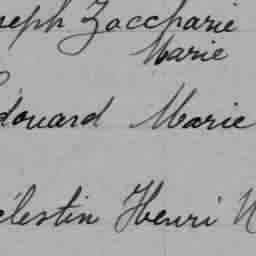 seph Zaccharie
Marie
Edouard Marie
élestin Henri